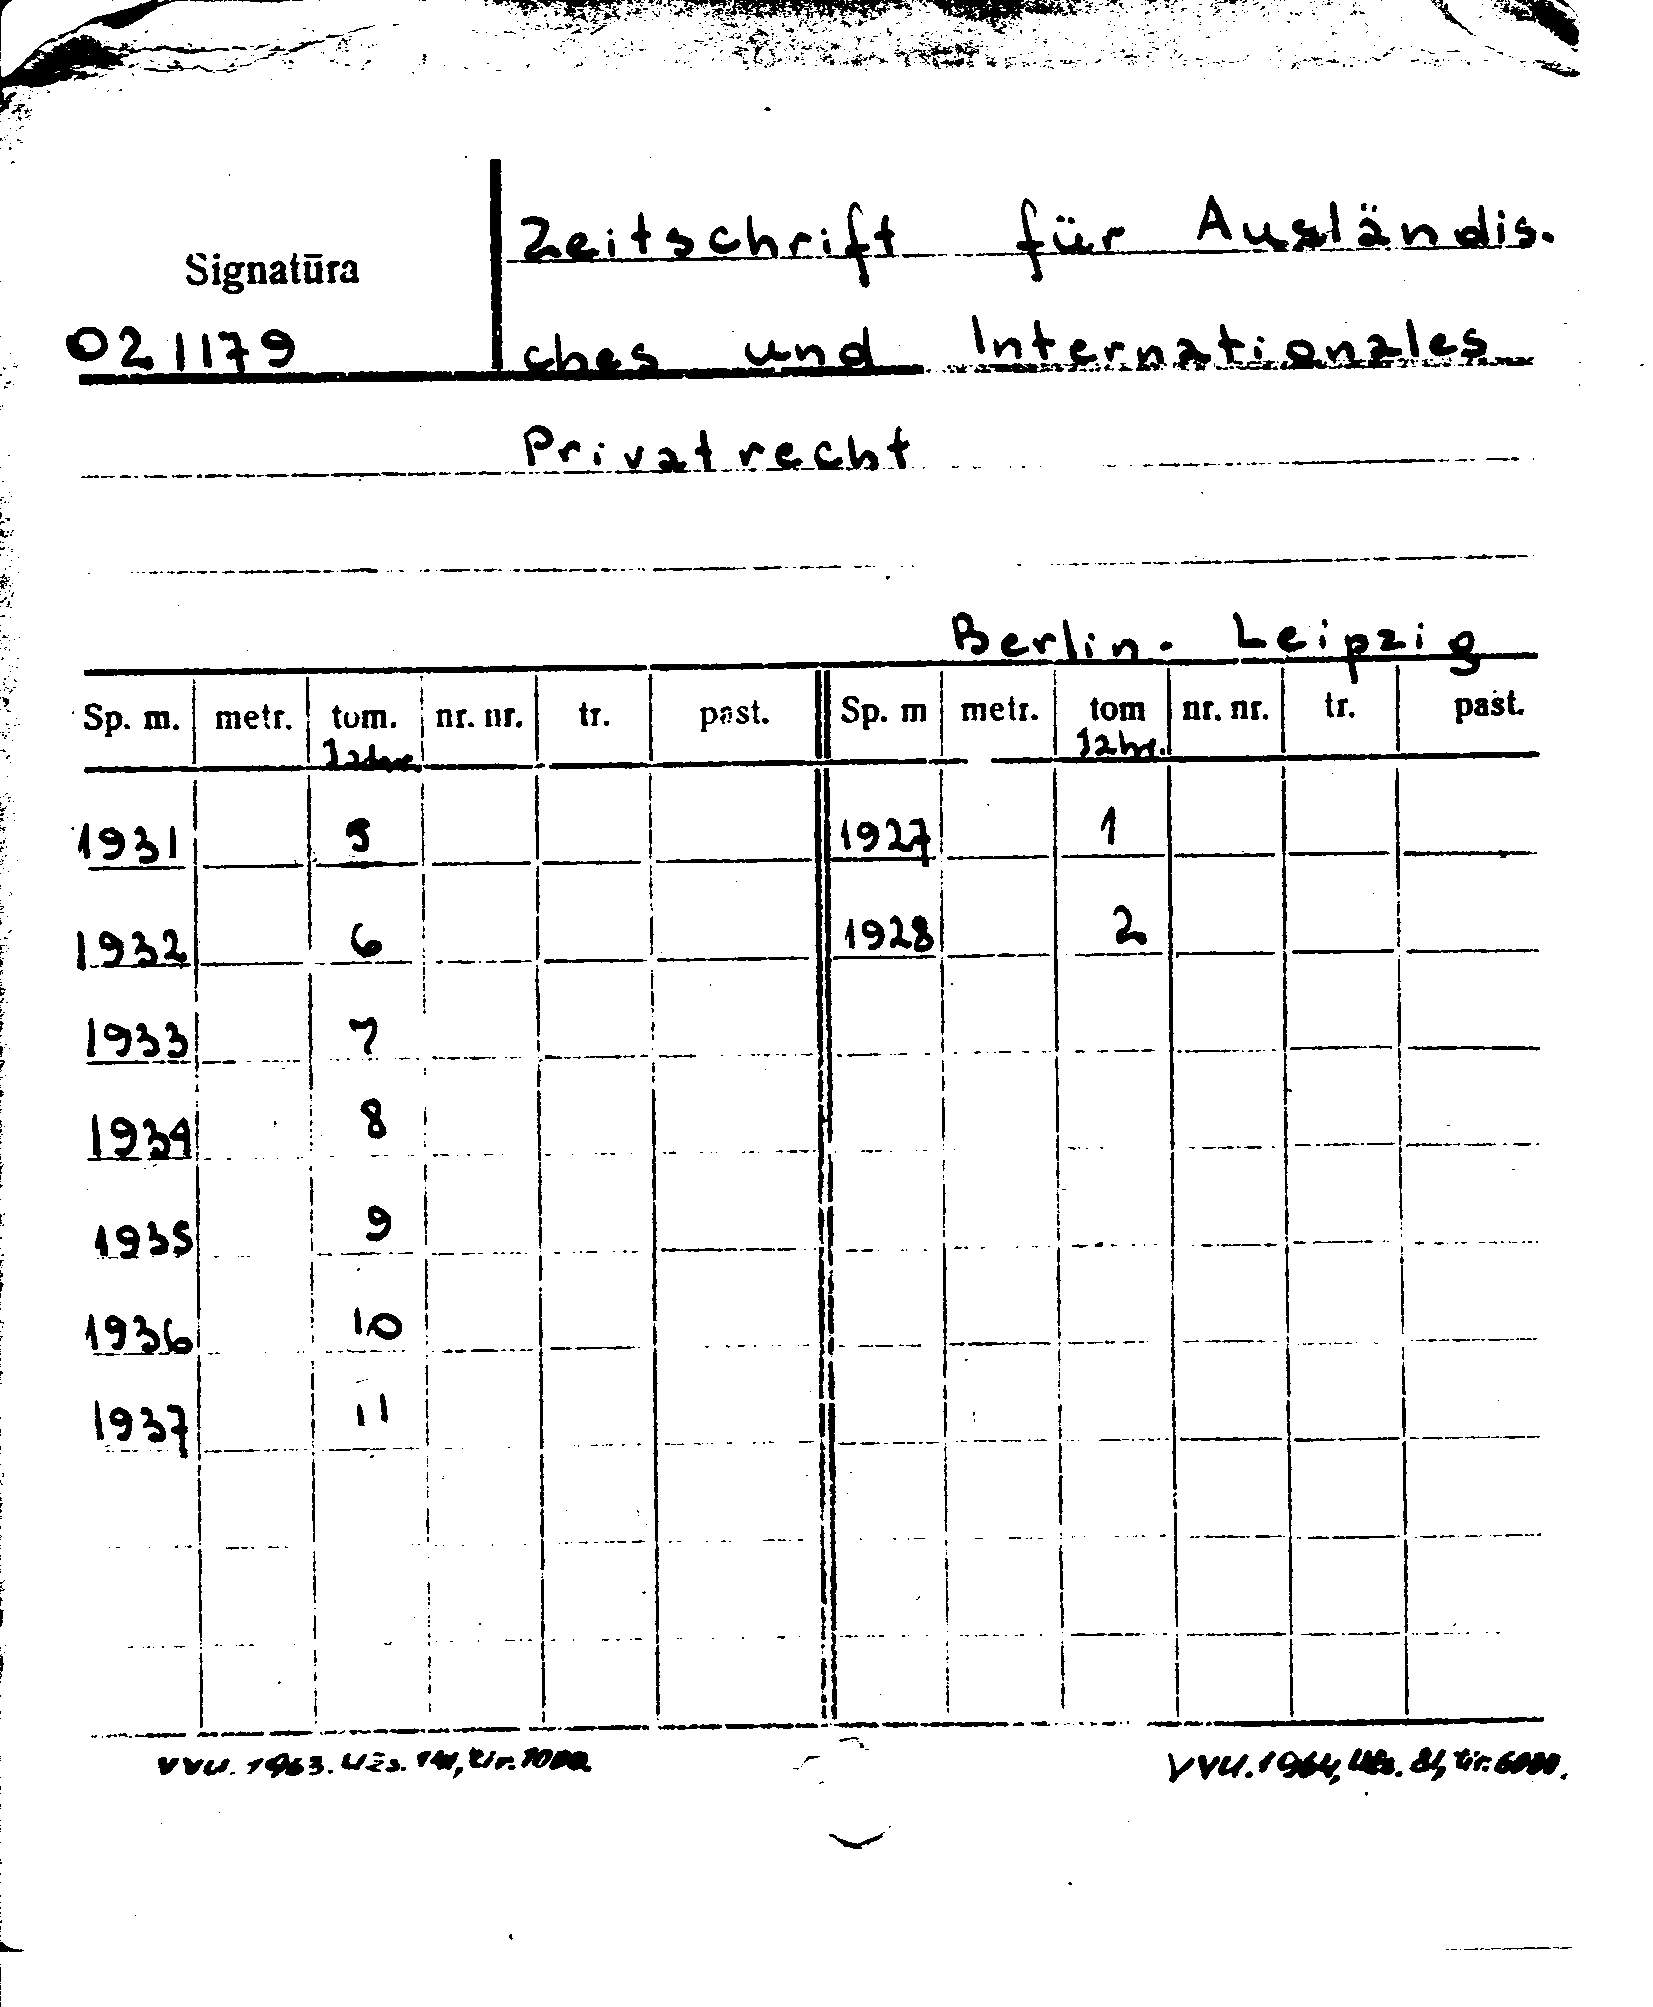 Zeitschrift für Ausländis.
Signatūra
021179
ches und Internationales
Privatrecht
Berlin. Leipzig
Sp. m. metr. tom. nr. nr. tr. past. Sp. m metr. tom nr. nr. tr. past.
Jahrg. Jahrg.
1931 5 1927 1
1932 6 1928 2
1933 7
1934 8
1935 9
1936 10
1937 11
VVU. 1963. Užs. tir. VVU. 1964, Užs. 81, tir. 6000.